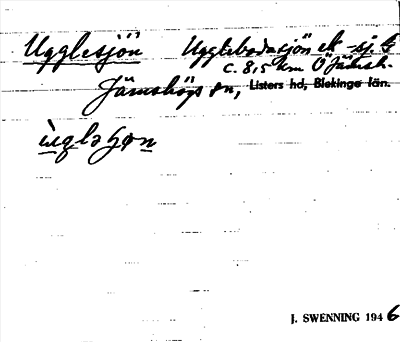 Ugglesjön Ugglebodasjön ek -sj.
c. 8,5 km Ö Jämsh.
Jämshögs sn, Listers hd, Blekinge län.
ùglaʃøn
J. SWENNING 1946